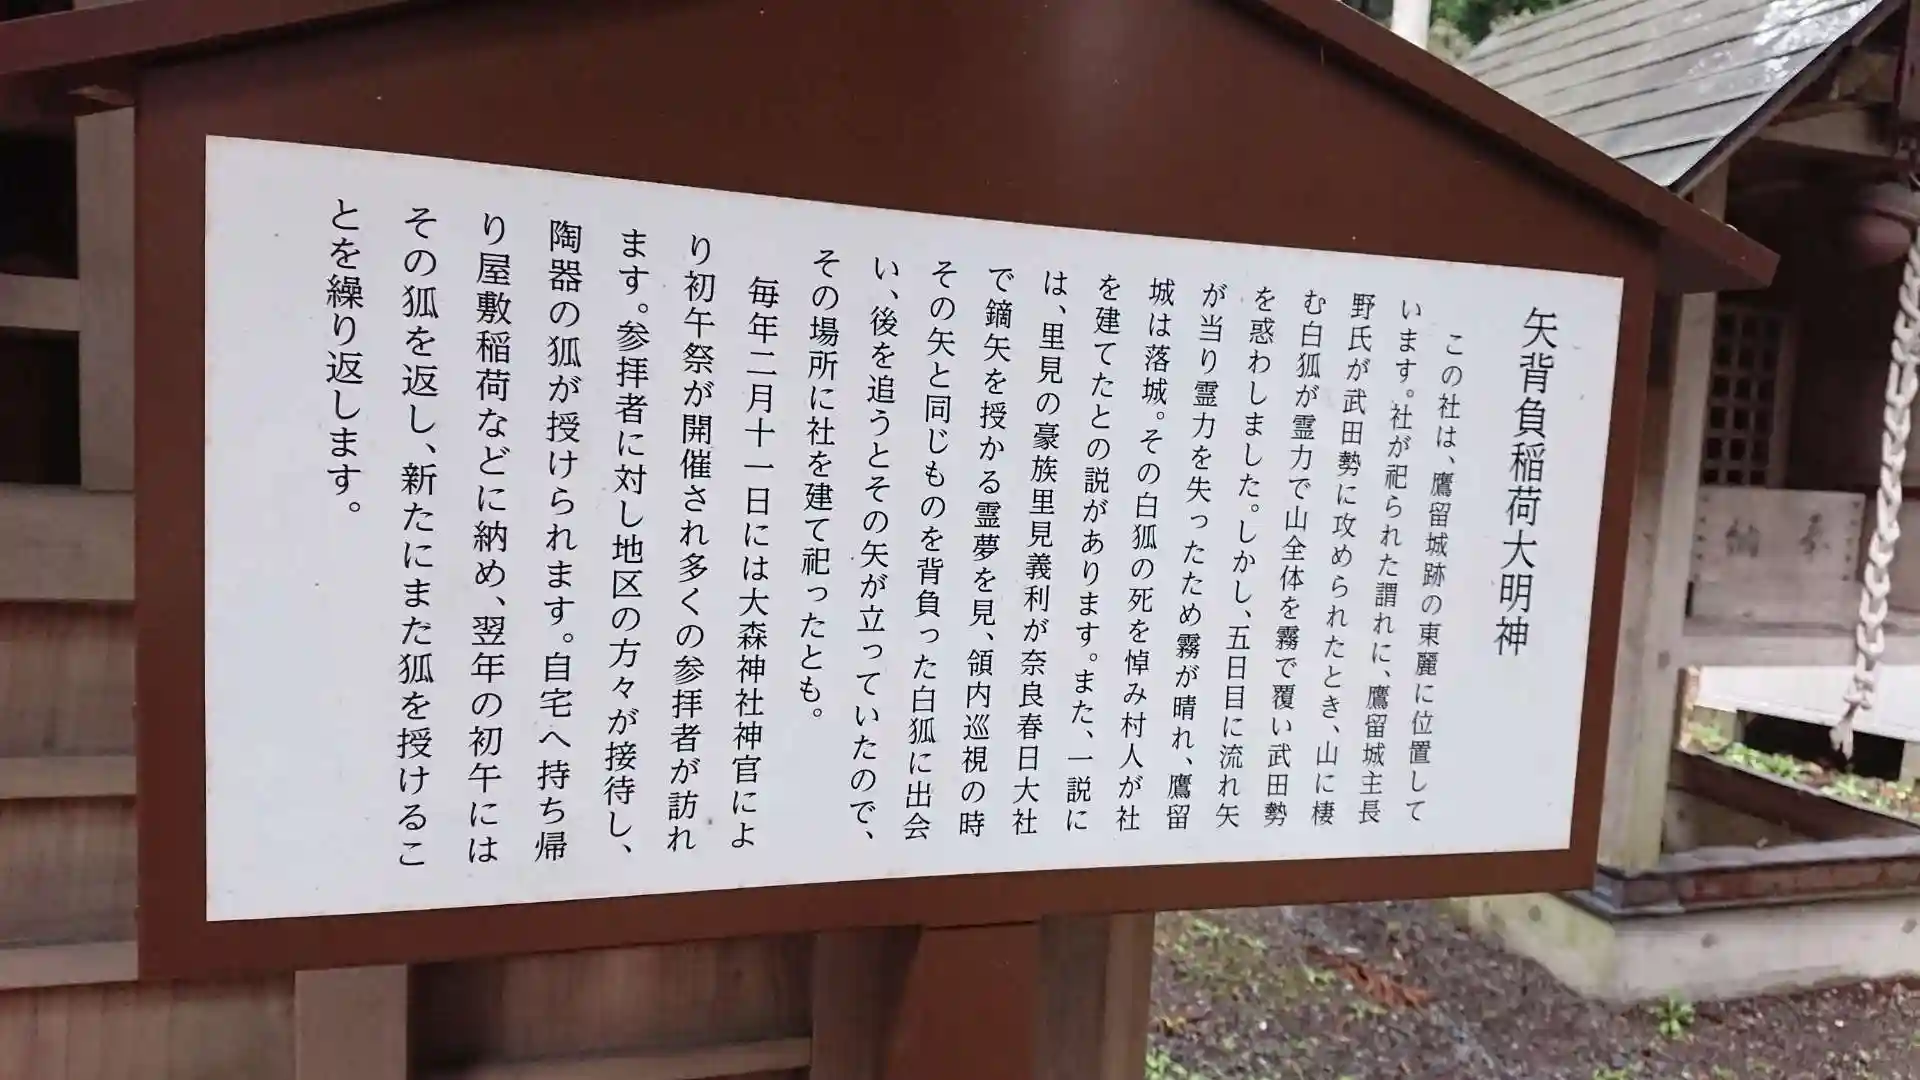 矢背負稲荷大明神
この社は、鷹留城跡の東麗に位置して
います。社が祀られた謂れに、鷹留城主長
野氏が武田勢に攻められたとき、山に棲
む白狐が霊力で山全体を霧で覆い武田勢
を惑わしました。しかし、五日目に流れ矢
が当り霊力を失ったため霧が晴れ、鷹留
城は落城。その白狐の死を悼み村人が社
を建てたとの説があります。また、一説に
は、里見の豪族里見義利が奈良春日大社
で鏑矢を授かる霊夢を見、領内巡視の時
その矢と同じものを背負った白狐に出会
い、後を追うとその矢が立っていたので、
その場所に社を建て祀ったとも。
毎年二月十一日には大森神社神官によ
り初午祭が開催され多くの参拝者が訪れ
ます。参拝者に対し地区の方々が接待し、
陶器の狐が授けられます。自宅へ持ち帰
り屋敷稲荷などに納め、翌年の初午には
その狐を返し、新たにまた狐を授けるこ
とを繰り返します。
奉納